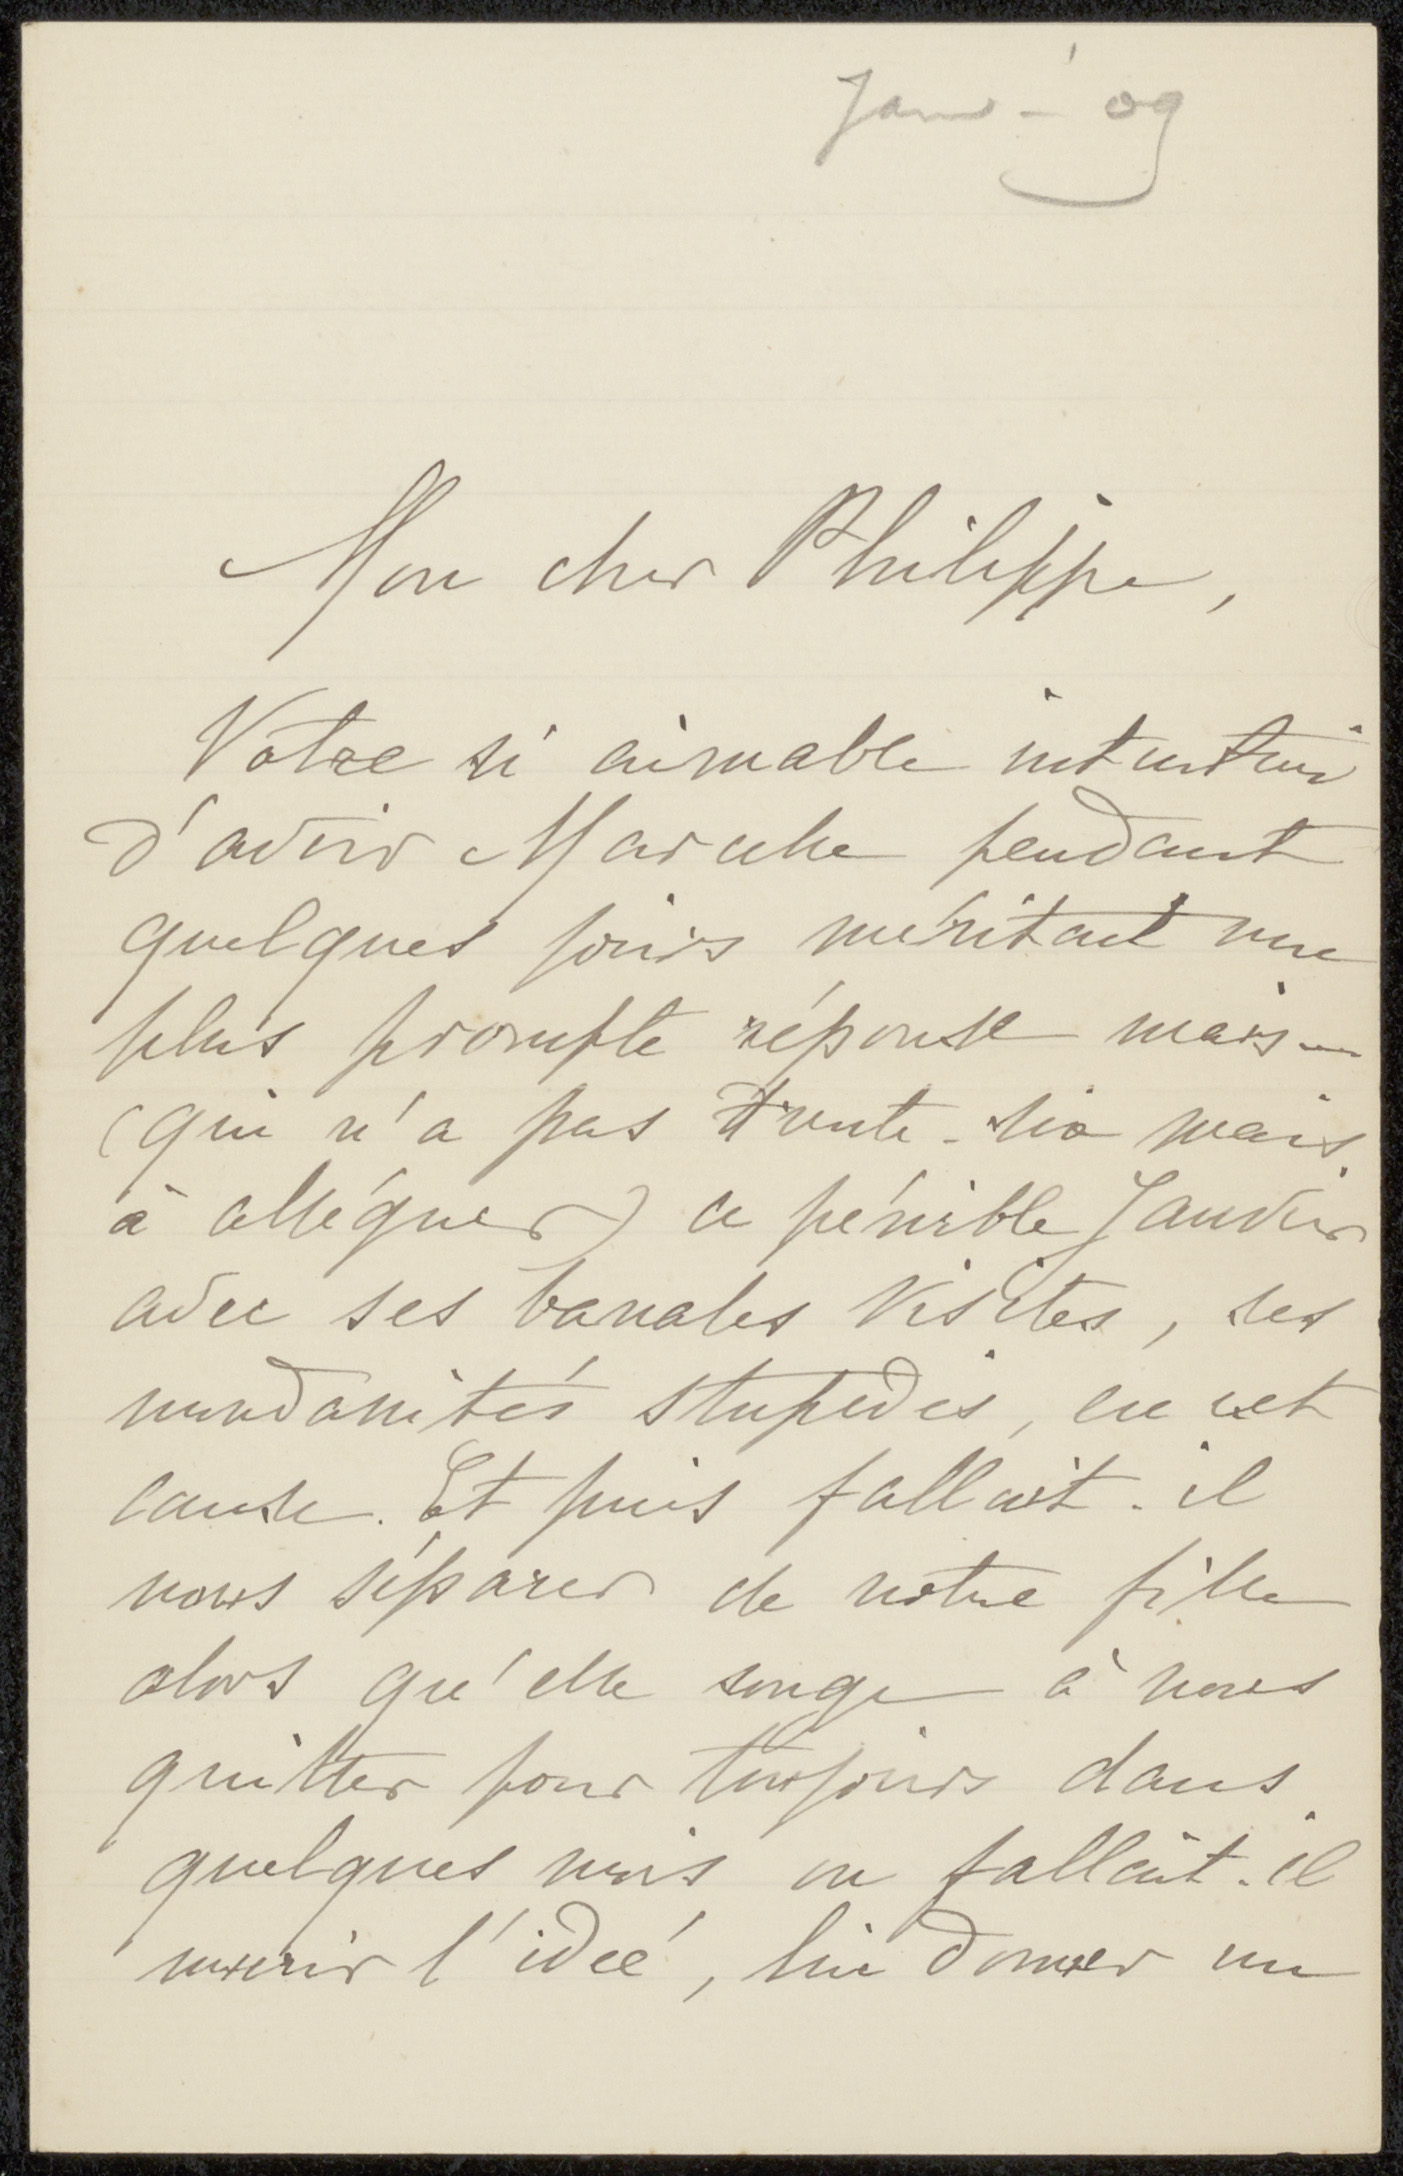 Janv - 09
Mon cher Philippe,
Votre si aimable intention
d'avoir Marcelle pendant
quelques jours méritait une
plus prompte réponse mais
(qui n'a pas trente-six mais
à alléguer) ce pénible Janvier
avec ses banales visites, ses
mondanités stupides, en est
cause. Et puis fallait-il
nous séparer de notre fille
alors qu'elle songe à nous
quitter pour toujours dans
quelques mois, ou fallait-il
mûrir l'idée, lui donner un